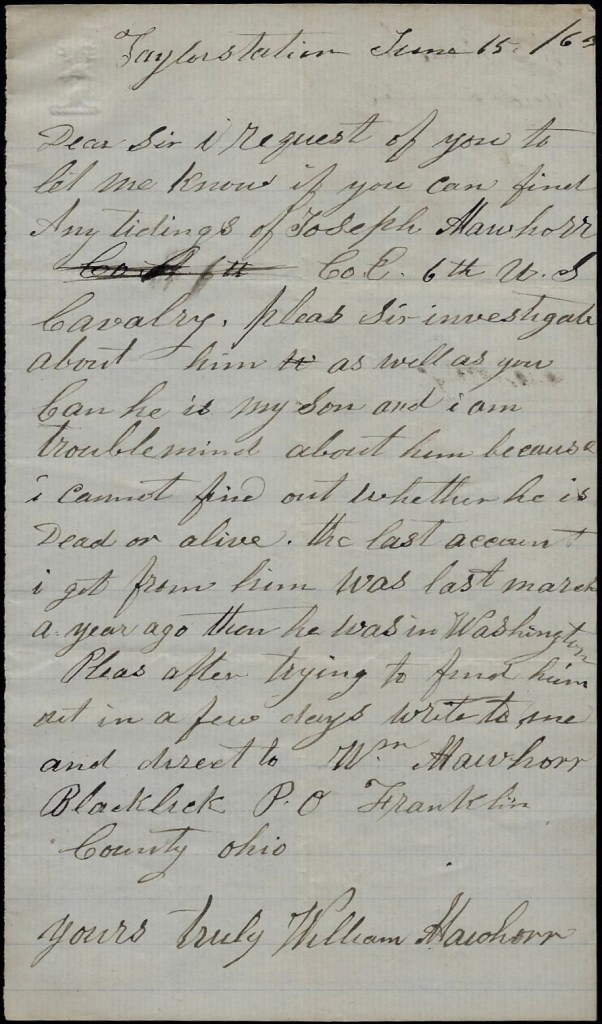 Taylorstation June 15. /63
Dear Sir i request of you to
let me know if you can find
Any tidings of Joseph Mawhorr
Co E. 6th U. S
Cavalry. pleas Sir investigate
about him as well as you
Can he is my Son and i am
trouble mind about him because
i cannot find out whether he is
Dead or alive. the last account
i got from him was last march
a year ago then he was in Washington
Pleas after trying to find him
out in a few days write to me
and direct to Wm Mawhorr
Blacklick P. O Franklin
County ohio
yours truly William Mawhorr